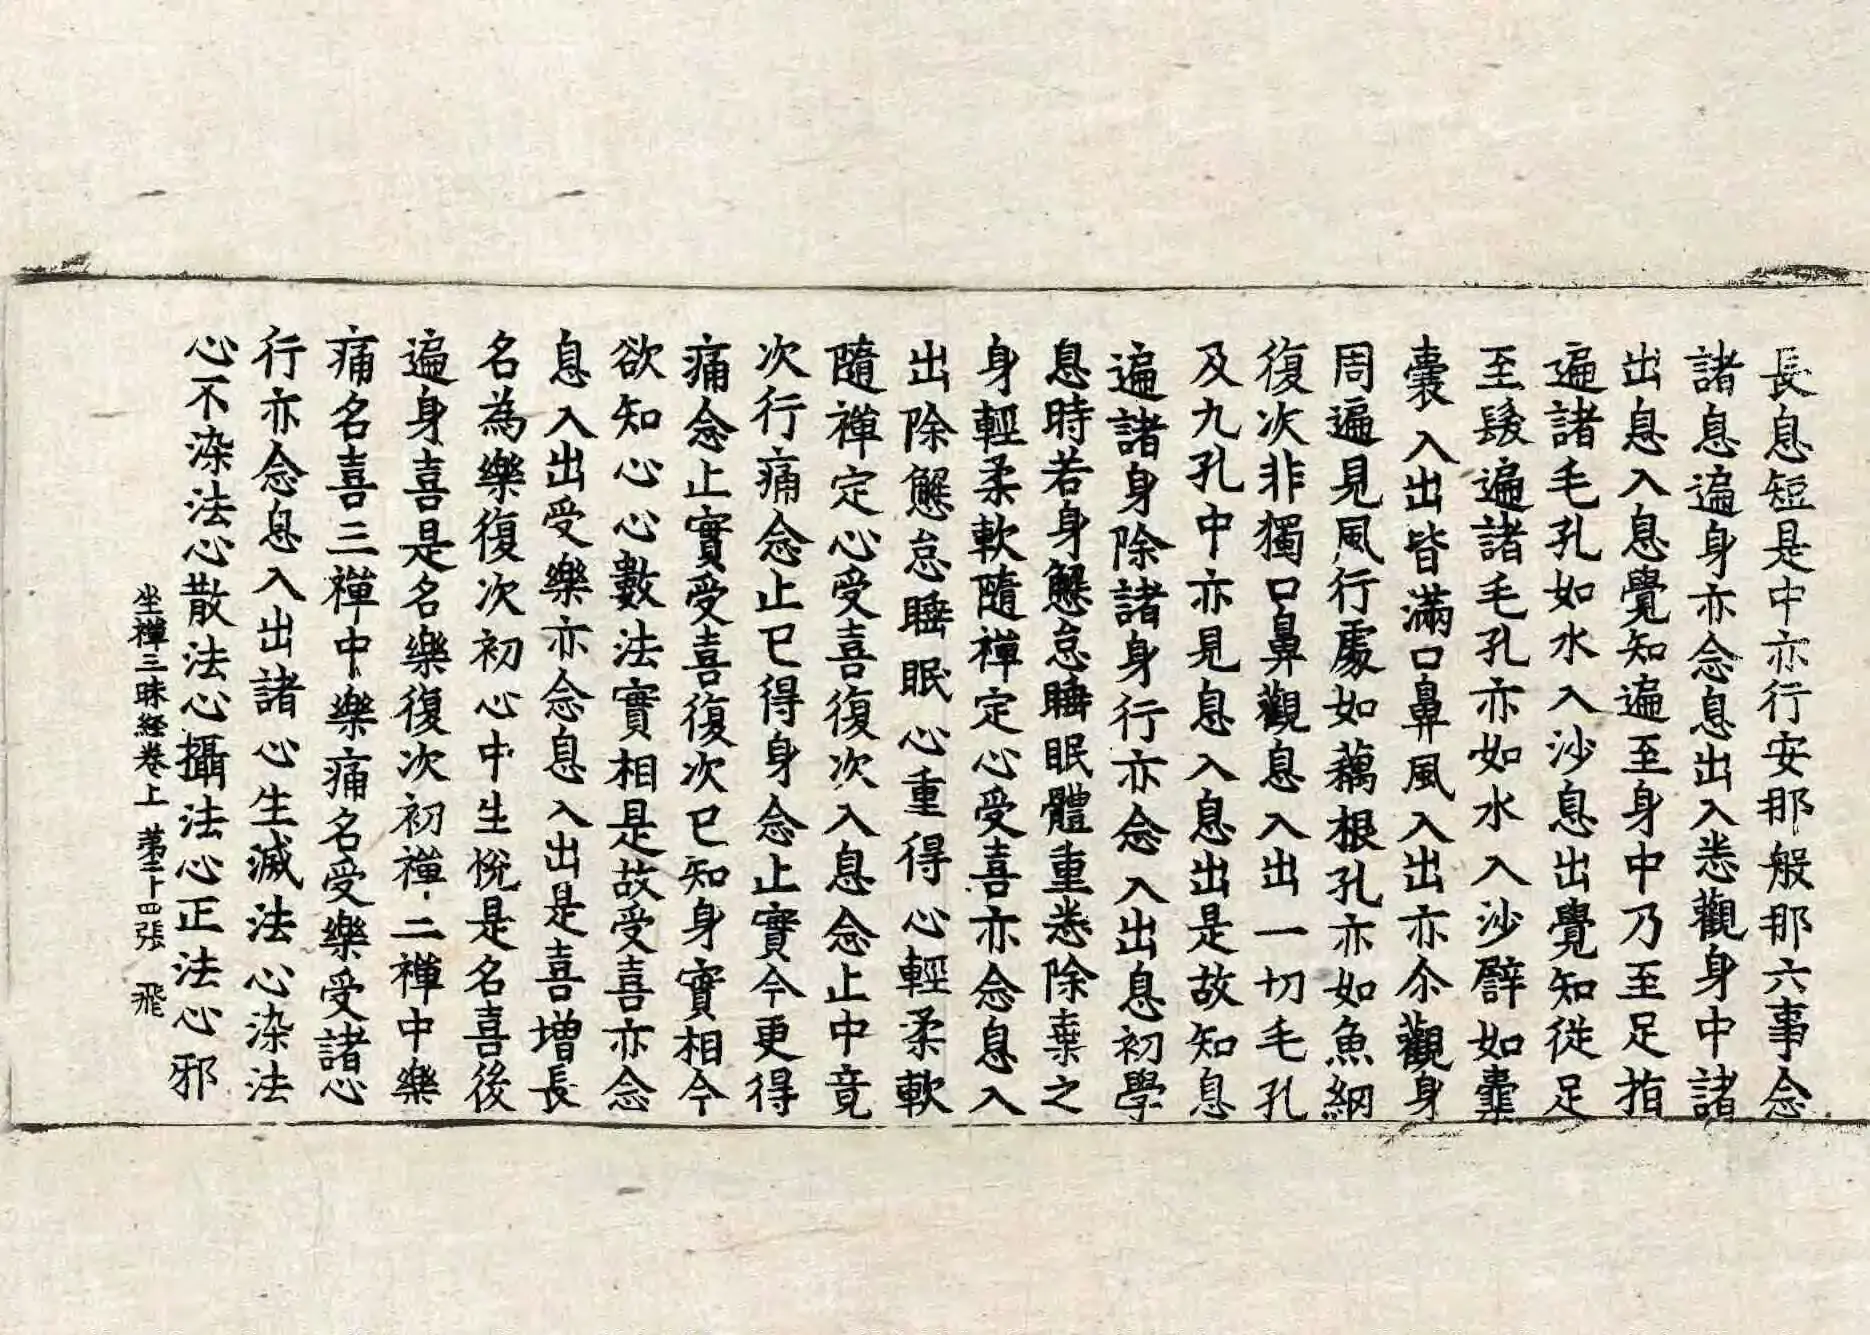 長息短是中亦行安那般那六事念
諸息遍身亦念息出入悉觀身中諸
出息入息覺知遍至身中乃至足指
遍諸毛孔如水入沙息出覺知從足
至髮遍諸毛孔亦如水入沙譬如橐
囊入出皆滿口鼻風入出亦尒觀身
周遍見風行處如藕根孔亦如魚網
復次非獨口鼻觀息入出一切毛孔
及九孔中亦見息入息出是故知息
遍諸身除諸身行亦念入出息初學
息時若身懈怠睡眠體重悉除棄之
身輕柔軟隨禪定心受喜亦念息入
出除懈怠睡眠心重得心輕柔軟
隨禪定心受喜復次入息念止中竟
次行痛念止已得身念止實今更得
痛念止實受喜復次已知身實相今
欲知心心數法實相是故受喜亦念
息入出受樂亦念息入出是喜增長
名為樂復次初心中生悅是名喜後
遍身喜是名樂復次初禪二禪中樂
痛名喜三禪中樂痛名受樂受諸心
行亦念息入出諸心生滅法心染法
心不染法心散法心攝法心正法心邪
坐禪三昧経卷上 第二十四張 飛